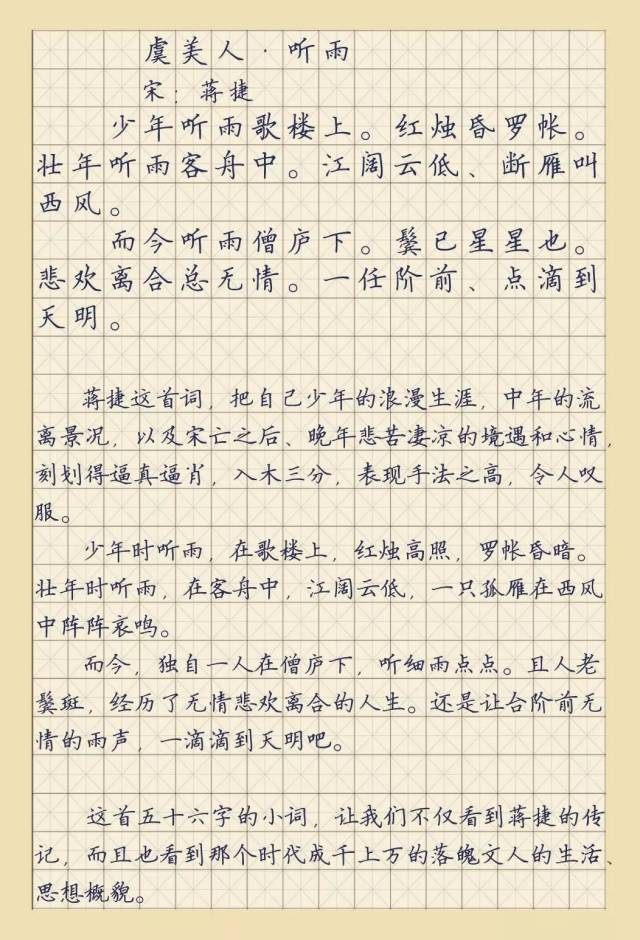 虞美人·听雨
宋：蒋捷
少年听雨歌楼上。红烛昏罗帐。
壮年听雨客舟中。江阔云低、断雁叫
西风。
而今听雨僧庐下。鬓已星星也。
悲欢离合总无情。一任阶前、点滴到
天明。
蒋捷这首词，把自己少年的浪漫生涯，中年的流
离景况，以及宋亡之后、晚年悲苦凄凉的境遇和心情，
刻划得逼真逼肖，入木三分，表现手法之高，令人叹
服。
少年时听雨，在歌楼上，红烛高照，罗帐昏暗。
壮年时听雨，在客舟中，江阔云低，一只孤雁在西风
中阵阵哀鸣。
而今，独自一人在僧庐下，听细雨点点。且人老
鬓斑，经历了无情悲欢离合的人生。还是让台阶前无
情的雨声，一滴滴到天明吧。
这首五十六字的小词，让我们不仅看到蒋捷的传
记，而且也看到那个时代成千上万的落魄文人的生活、
思想概貌。